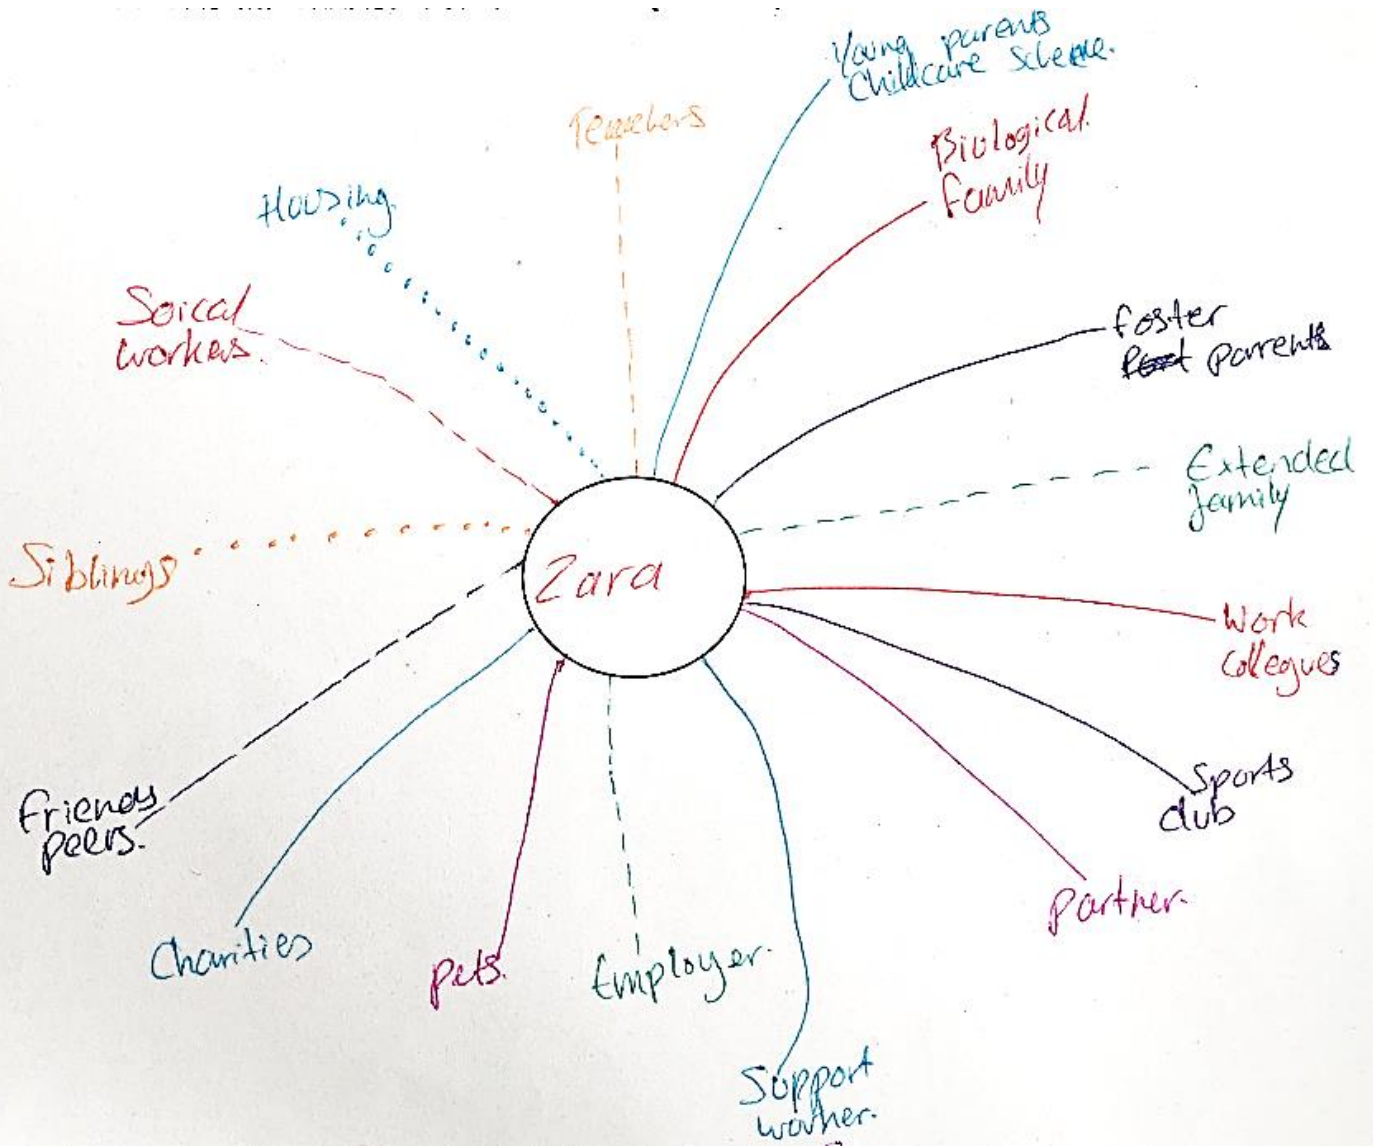 Young parents
Childcare Scheme.
Teachers
Biological
family
Housing.
Soical
workers.
foster
parrents
Extended
family
Siblings
Zara
Work
Collegues
Friends
peers.
Sports
club
Partner.
Charities
Pets.
Employer.
Support
worker.